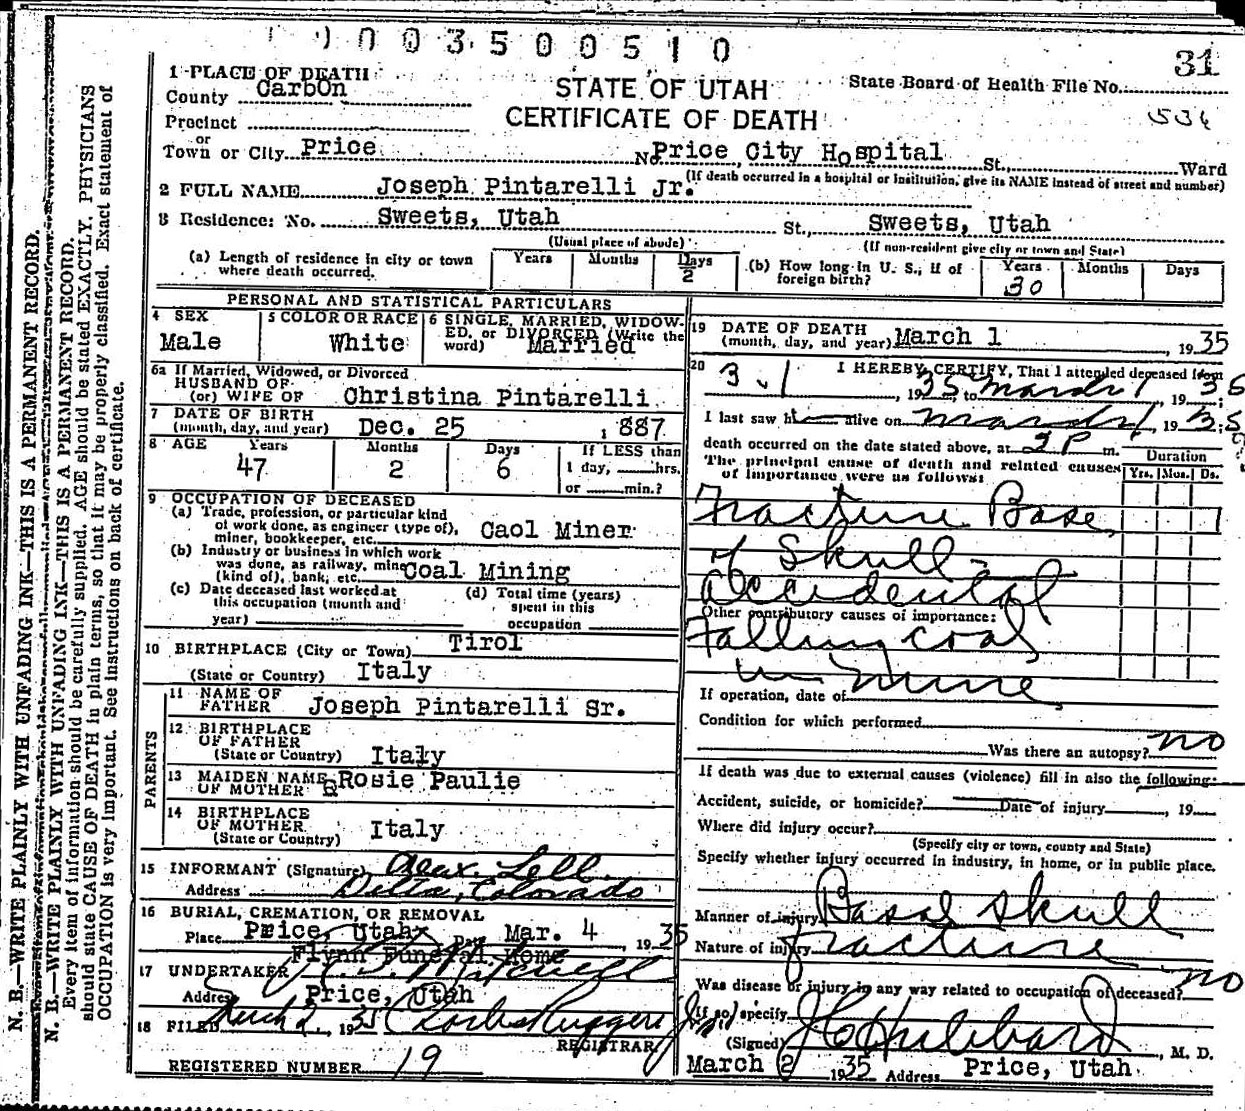 1003500510
31
1 PLACE OF DEATH
County Carbon
STATE OF UTAH
State Board of Health File No.
CERTIFICATE OF DEATH
534
Precinct
or
Town or City Price No. Price City Hospital St. Ward
(If death occurred in a hospital or institution, give its NAME instead of street and number)
2 FULL NAME Joseph Pintarelli Jr.
3 Residence: No. Sweets, Utah St., Sweets, Utah
(Usual place of abode) (If non-resident give city or town and State)
(a) Length of residence in city or town where death occurred. Years Months Days 2
(b) How long in U. S., if of foreign birth? Years 30 Months Days
PERSONAL AND STATISTICAL PARTICULARS
4 SEX Male
5 COLOR OR RACE White
6 SINGLE, MARRIED, WIDOWED, or DIVORCED (Write the word) Married
6a If Married, Widowed, or Divorced
HUSBAND OF
(or) WIFE OF Christina Pintarelli
7 DATE OF BIRTH
(month, day, and year) Dec. 25 1887
8 AGE Years 47 Months 2 Days 6 If LESS than 1 day, hrs. or min.?
9 OCCUPATION OF DECEASED
(a) Trade, profession, or particular kind
of work done, as engineer (type of),
miner, bookkeeper, etc. Caol Miner
(b) Industry or business in which work
was done, as railway, mine
(kind of), bank, etc. Coal Mining
(c) Date deceased last worked at
this occupation (month and
year)
(d) Total time (years)
spent in this
occupation
10 BIRTHPLACE (City or Town) Tirol
(State or Country) Italy
PARENTS
11 NAME OF
FATHER Joseph Pintarelli Sr.
12 BIRTHPLACE
OF FATHER
(State or Country) Italy
13 MAIDEN NAME
OF MOTHER Rosie Paulie
14 BIRTHPLACE
OF MOTHER
(State or Country) Italy
15 INFORMANT (Signature) Lell
Address Delta, Colorado
16 BURIAL, CREMATION, OR REMOVAL
Place Price, Utah Date Mar. 4, 1935
Flynn Funeral Home
17 UNDERTAKER Mitchell
Address Price, Utah
18 FILED March 2, 1935 Ruggeri
REGISTRAR
REGISTERED NUMBER 19
19 DATE OF DEATH
(month, day, and year) March 1, 1935
20 I HEREBY CERTIFY, That I attended deceased from
3.1, 1935 to March 1, 1935;
I last saw h alive on March 1, 1935;
death occurred on the date stated above, at 2 P m.
The principal cause of death and related causes
of importance were as follows:
Duration
Yrs. Mos. Ds.
Fracture Base
of Skull -
accidental
Other contributory causes of importance:
Falling coal
in mine
If operation, date of
Condition for which performed
Was there an autopsy? no
If death was due to external causes (violence) fill in also the following:
Accident, suicide, or homicide? Date of injury, 19
Where did injury occur?
(Specify city or town, county and State)
Specify whether injury occurred in industry, in home, or in public place.
Manner of injury Basal skull
Nature of injury fracture
Was disease or injury in any way related to occupation of deceased? no
If so, specify
(Signed) J C Hubbard, M. D.
March 2 1935 Address Price, Utah
N. B.—WRITE PLAINLY WITH UNFADING INK—THIS IS A PERMANENT RECORD.
N. B.—WRITE PLAINLY WITH UNFADING INK—THIS IS A PERMANENT RECORD.
Every item of information should be carefully supplied. AGE should be stated EXACTLY. PHYSICIANS
should state CAUSE OF DEATH in plain terms, so that it may be properly classified. Exact statement of
OCCUPATION is very important. See instructions on back of certificate.